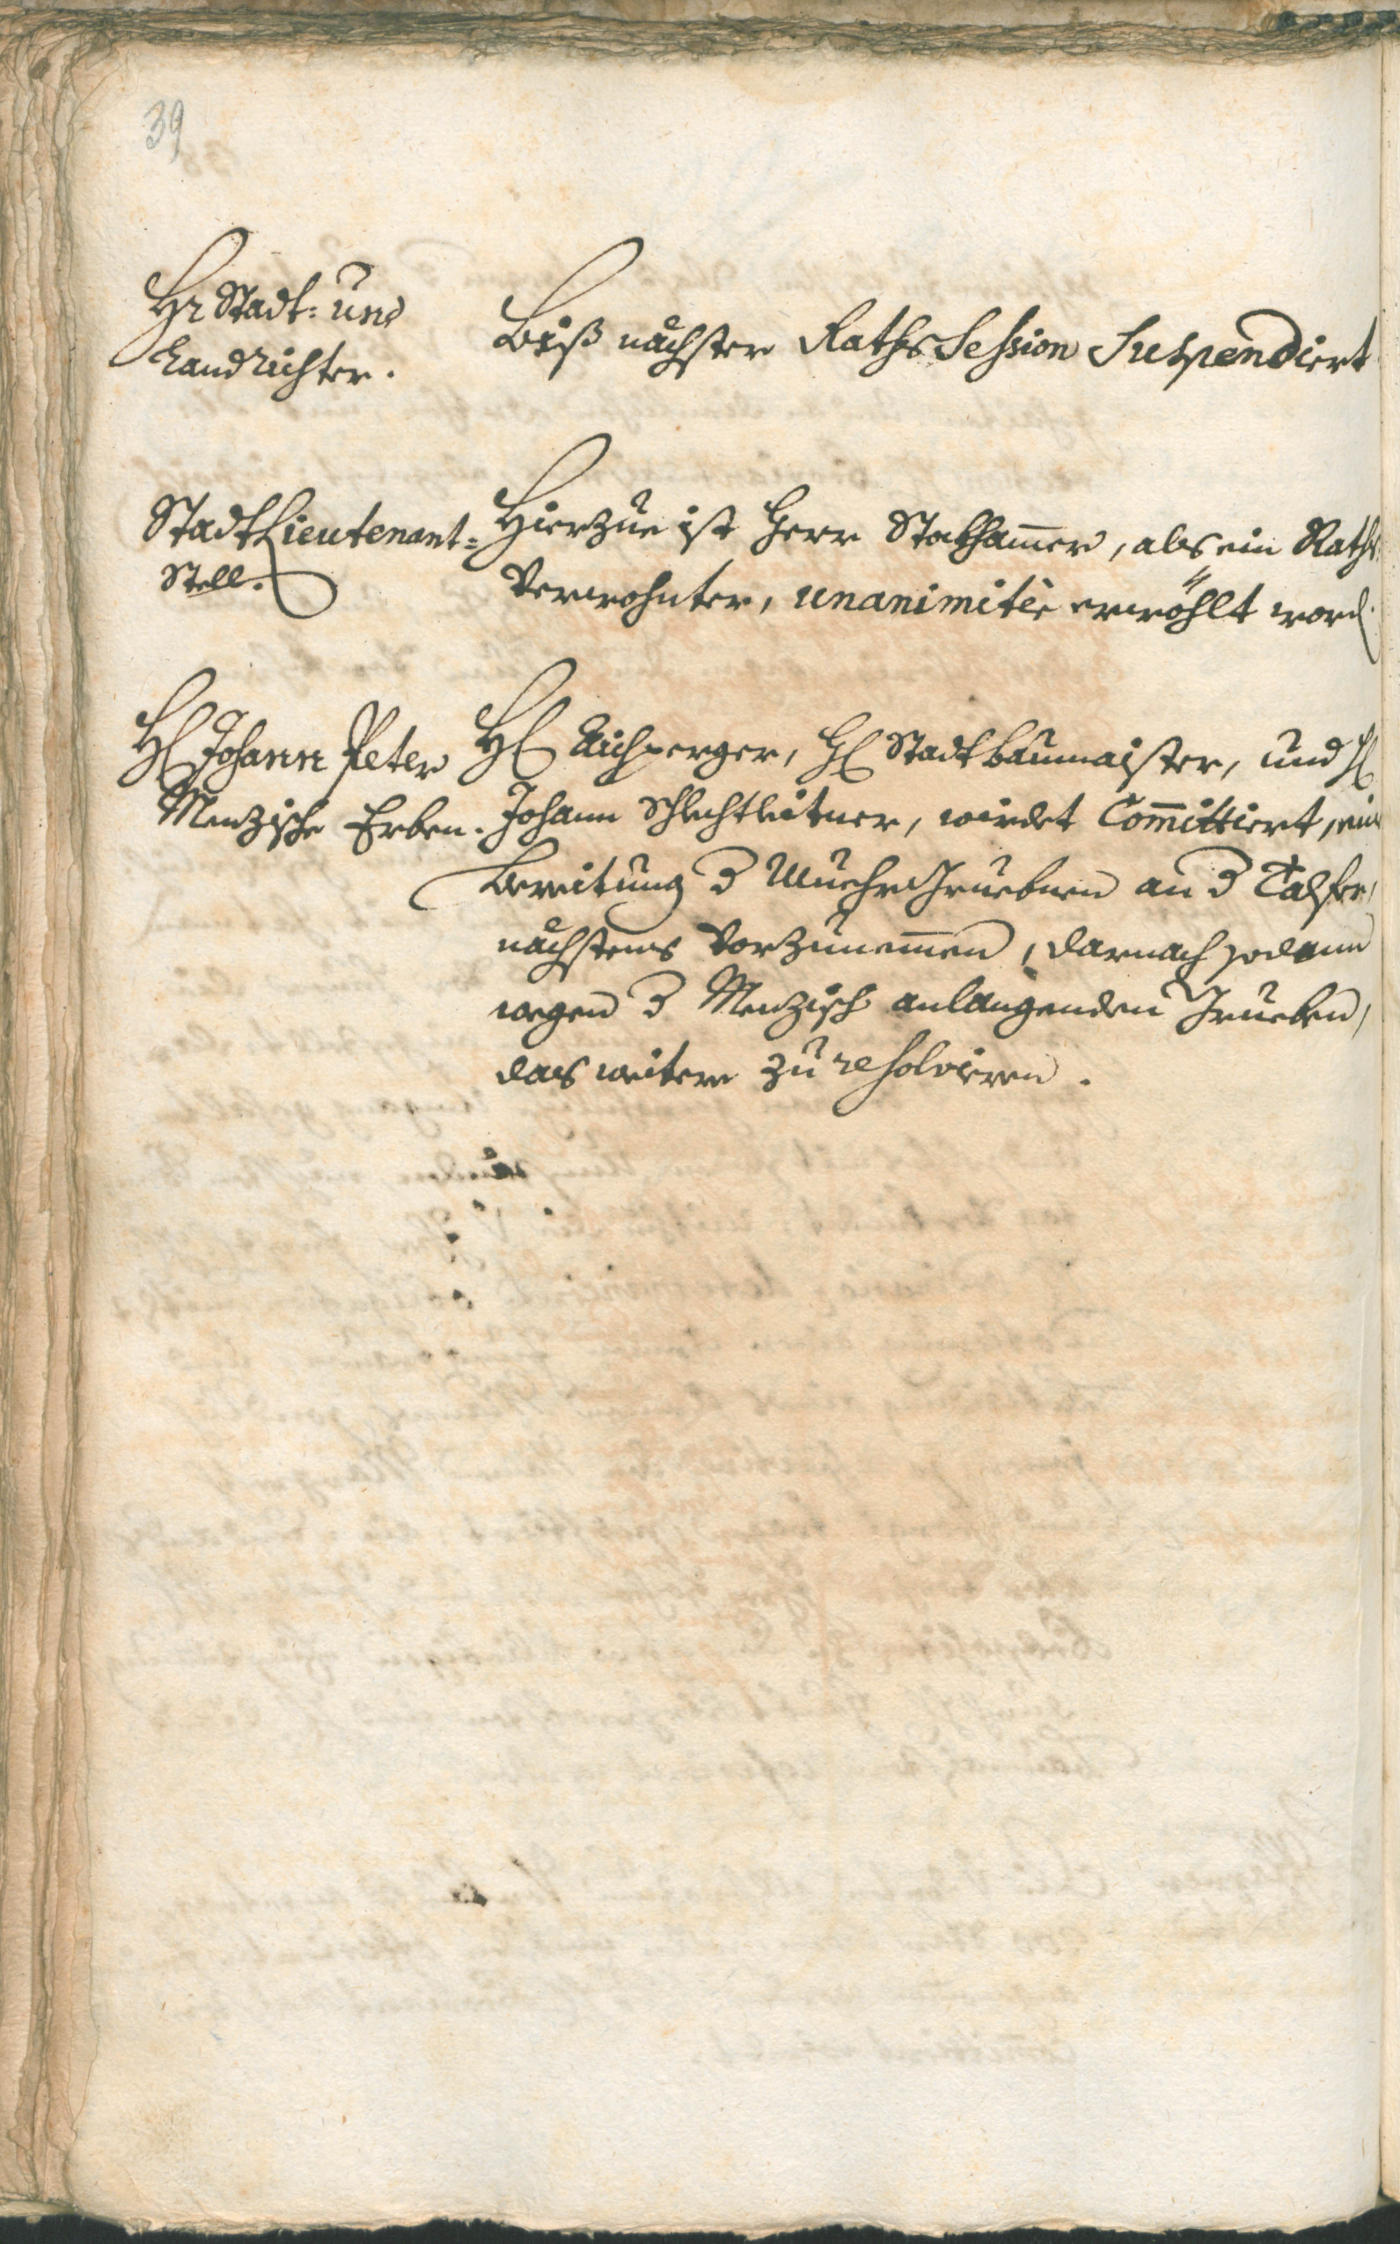 39
Hr Stadt: und
Landrichter.
Biß nächster Raths Session Suspendiert
Stadt Lieutenant-
Stell.
Hierzue ist Herr Stokhamer, als ein Raths
Verwohnter, unanimitèr erwöhlt word.
H. Johann Peter
Menzische Erben.
H. Aichperger, H. Stadtbaumaister, und H.
Johann Schlechtleitner, wirdet Committiert, ein
Bereitung d. Wuehr Gruebnen an d. Talfer,
nächstens vorzunemen, darnach sodann
wegen d. Menzisch anlangenden Grueben,
das weitere zu resolvieren.